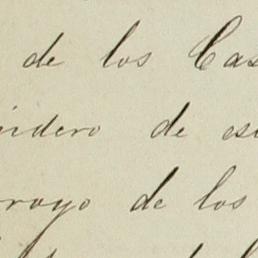 de los Cas
idero de es
rroyo de los